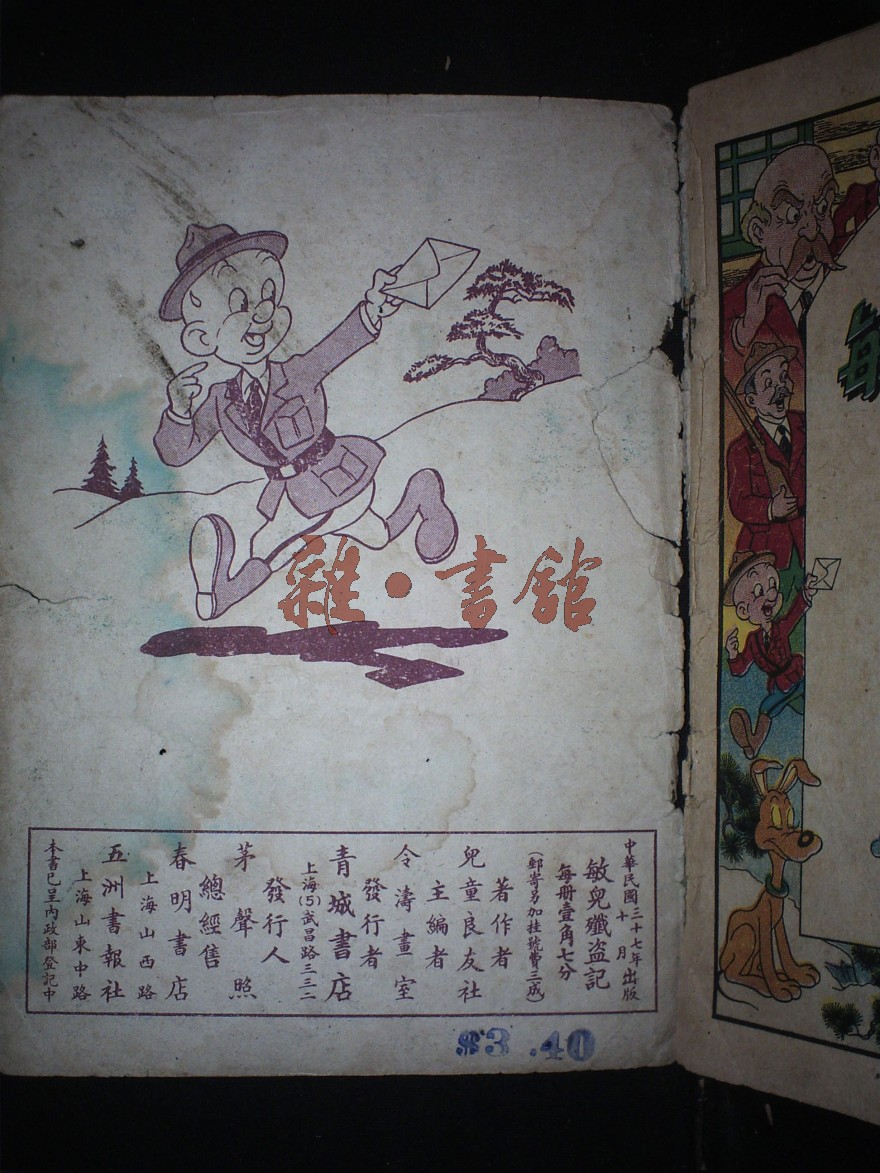 雜·書舘
中華民國三十七年十月出版
敏兒殲盜記
每册壹角七分
(郵寄另加挂號費三成)
著作者
兒童良友社
主編者
令濤畫室
發行者
青城書店
上海(5)武昌路三三二
發行人
茅聲照
總經售
春明書店
上海山西路
五洲書報社
上海山東中路
本書已呈內政部登記中
$3.40